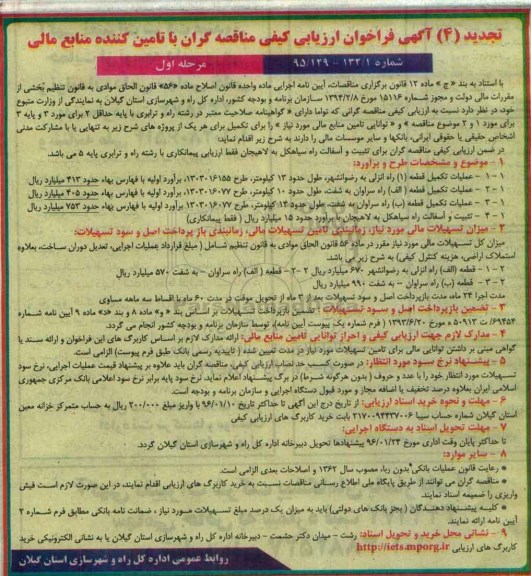 تجدید (۴) آگهی فراخوان ارزیابی کیفی مناقصه گران با تامین کننده منابع مالی
شماره ۱۳۲/۱ - ۹۵/۱۲۹ مرحله اول
با استناد به بند « ج » ماده ۱۲ قانون برگزاری مناقصات، آیین نامه اجرایی ماده واحده قانون اصلاح ماده «۵۶» قانون الحاق موادی به قانون تنظیم بخشی از
مقررات مالی دولت و مجوز شماره ۱۵۱۱۶ مورخ ۱۳۹۴/۲/۸ سازمان برنامه و بودجه کشور، اداره کل راه و شهرسازی استان گیلان به نمایندگی از وزارت متبوع
خود، در نظر دارد نسبت به ارزیابی کیفی مناقصه گرانی که تواما دارای « گواهینامه صلاحیت معتبر در رشته راه و ترابری با پایه حداقل ۲ برای مورد ۳ و پایه ۳
برای مورد ۱ و ۲ موضوع مناقصه » و « توانایی تامین منابع مالی مورد نیاز » را برای تکمیل برای هر یک از پروژه های شرح زیر به تنهایی یا با مشارکت مدنی
اشخاص حقیقی یا حقوقی ایرانی، بانکها و سایر موسسات مالی را دارند به شرح زیر اقدام نماید:
در ضمن ارزیابی کیفی مناقصه گران برای تثبیت و آسفالت راه سیاهکل به لاهیجان فقط ارزیابی پیمانکاری با رشته راه و ترابری پایه ۵ می باشد.
۱ - موضوع و مشخصات طرح و برآورد:
۱ - ۱ - عملیات تکمیل قطعه (۱) راه انزلی به رضوانشهر، طول حدود ۱۳ کیلومتر، طرح ۱۳۰۳۰۱۶۱۵۵، برآورد اولیه با فهارس بهاء حدود ۴۱۳ میلیارد ریال
۲ - ۱ - عملیات تکمیل قطعه (الف) راه سراوان به شفت، طول حدود ۱۰ کیلومتر، طرح ۱۳۰۳۰۱۶۰۷۷، برآورد اولیه با فهارس بهاء حدود ۴۰۵ میلیارد ریال
۳ - ۱ - عملیات تکمیل قطعه (ب) راه سراوان به شفت، طول حدود ۱۴ کیلومتر، طرح ۱۳۰۳۰۱۶۰۷۷، برآورد اولیه با فهارس بهاء حدود ۷۵۳ میلیارد ریال
۴ - ۱ - تثبیت و آسفالت راه سیاهکل به لاهیجان با برآورد حدود ۱۵ میلیارد ریال ( فقط پیمانکاری)
۲ - میزان تسهیلات مالی مورد نیاز، زمانبندی تامین تسهیلات مالی، زمانبندی باز پرداخت اصل و سود تسهیلات:
میزان کل تسهیلات مالی مورد نیاز مقرر در ماده ۵۶ قانون الحاق موادی به قانون تنظیم شامل ( مبلغ قرارداد عملیات اجرایی، تعدیل دوران ساخت، بعلاوه
استملاک اراضی، هزینه کنترل کیفی) به شرح زیر می باشد.
۱ – ۲ - قطعه (الف) راه انزلی به رضوانشهر ۶۷۰ میلیارد ریال ۲ - ۲ - قطعه ( الف) راه سراوان - به شفت ۵۷۰ میلیارد ریال
۳ – ۲ - قطعه (ب) راه سراوان – به شفت ۹۹۰ میلیارد ریال
مدت اجرا ۲۴ ماه، مدت بازپرداخت اصل و سود تسهیلات بعد از ۳ ماه از تحویل موقت در مدت ۶۰ ماه با اقساط سه ماهه مساوی
۳ - تضمین بازپرداخت اصل و سود تسهیلات : تضمین بازپرداخت تسهیلات بر اساس بند « و» ماده ۸ و بند «د» ماده ۹ آیین نامه شماره
۶۹۴۵۴/ت ۵۰۹۱۳ ه مورخ ۱۳۹۳/۶/۲۰ ( فرم شماره یک پیوست آیین نامه)، توسط سازمان برنامه و بودجه کشور انجام می گردد.
۴ - مدارک لازم جهت ارزیابی کیفی و احراز توانایی تامین منابع مالی: ارائه مدارک لازم بر اساس کاربرگ های این فراخوان و ارائه سند یا
گواهی مبنی بر داشتن توانایی مالی برای تامین تسهیلات مورد نیاز در مدت تعیین شده ( تاییدیه رسمی بانک طبق فرم پیوست) الزامی است.
۵ - پیشنهاد نرخ سود مورد انتظار: در صورت کسب حد نصاب ارزیابی کیفی، مناقصه گران باید علاوه بر پیشنهاد قیمت عملیات اجرایی، نرخ سود
تسهیلات مورد انتظار خود را با عدد و حروف ( بدون هرگونه شرط) در برگ پیشنهاد اعلام نمایند. نرخ سود پایه برابر نرخ سود اعلامی بانک مرکزی جمهوری
اسلامی ایران بعلاوه درصد تخفیف یا اضافه مجاز و مورد قبول دستگاه اجرایی و سازمان برنامه و بودجه است.
۶ - مهلت و نحوه خرید اسناد ارزیابی: از تاریخ درج این آگهی تا حداکثر تاریخ ۹۶/۰۱/۱۰ با واریز مبلغ ۲۰۰/۰۰۰ ریال به حساب متمرکز خزانه معین
استان گیلان شماره حساب سیبا ۲۱۷۰۰۹۴۴۳۷۰۰۶ بابت خرید کاربرگ های ارزیابی کیفی
۷ - مهلت تحویل اسناد به دستگاه اجرایی:
تا حداکثر پایان وقت اداری مورخ ۹۶/۰۱/۲۴ پیشنهادها تحویل دبیرخانه اداره کل راه و شهرسازی استان گیلان گردد.
۸ - سایر موارد:
● رعایت قانون عملیات بانکی بدون ربا، مصوب سال ۱۳۶۲ و اصلاحات بعدی الزامی است.
● مناقصه گران می توانند از طریق پایگاه ملی اطلاع رسانی مناقصات نسبت به خرید کاربرگ های ارزیابی اقدام نمایند، در این صورت لازم است فیش
واریزی را ضمیمه اسناد نمایند.
● کلیه پیشنهاد دهندگان ( بجز بانک های دولتی) باید به میزان یک درصد مبلغ تسهیلات مورد نیاز ، ضمانت نامه بانکی مطابق فرم شماره ۲
آیین نامه ارائه نمایند.
۹ - نشانی محل خرید و تحویل اسناد: رشت - میدان دکتر حشمت - دبیرخانه اداره کل راه و شهرسازی استان گیلان یا به نشانی الکترونیکی خرید
کاربرگ های ارزیابی http://iets.mporg.ir
روابط عمومی اداره کل راه و شهرسازی استان گیلان